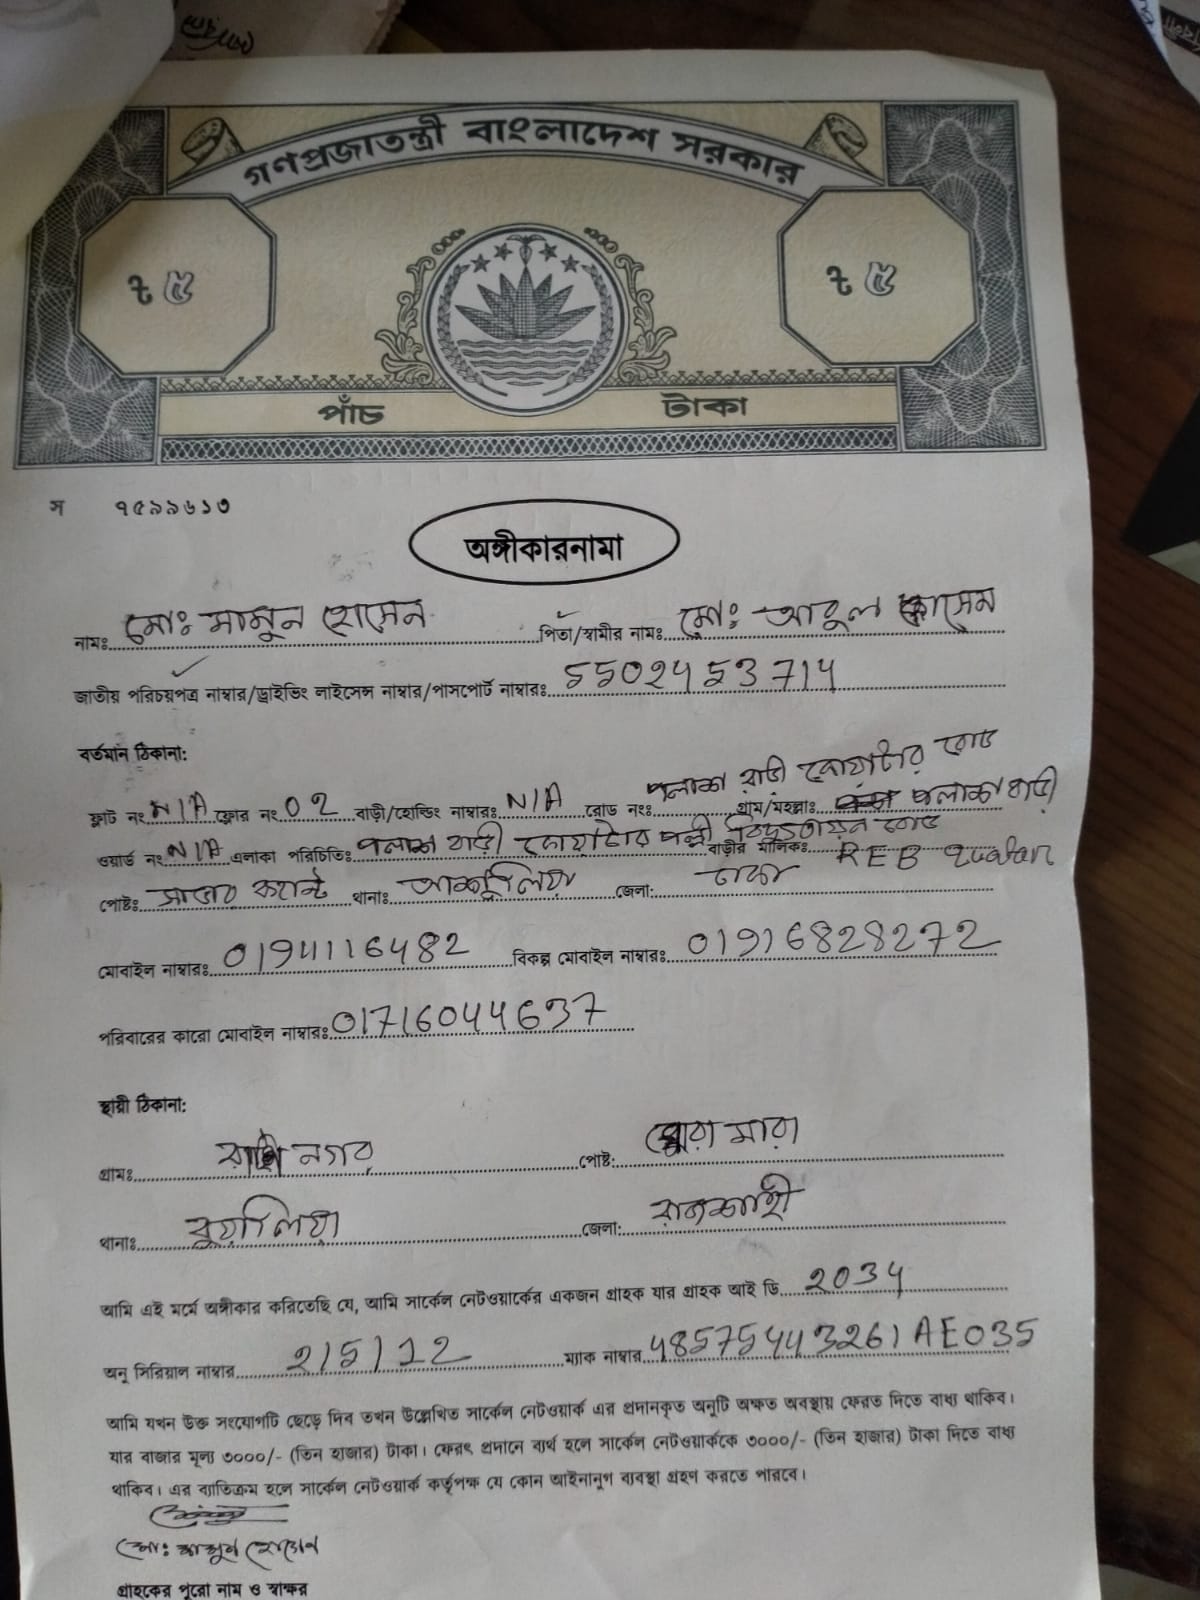 গণপ্রজাতন্ত্রী বাংলাদেশ সরকার
ট ৫ ট ৫
পাঁচ টাকা
স ৭৫৯৯৬১৩
অঙ্গীকারনামা
নামঃ মোঃ মামুন হোসেন পিতা/স্বামীর নামঃ মোঃ আবুল কাসেম
জাতীয় পরিচয়পত্র নাম্বার/ড্রাইভিং লাইসেন্স নাম্বার/পাসপোর্ট নাম্বারঃ 5502453714
বর্তমান ঠিকানা:
ফ্লাট নং N/A ফ্লোর নং 02 বাড়ী/হোল্ডিং নাম্বারঃ N/A রোড নংঃ পলাশ বাড়ী রোড গ্রাম/মহল্লাঃ পলাশ বাড়ী
ওয়ার্ড নং N/A এলাকা পরিচিতিঃ পলাশ বাড়ী পল্লী বিদ্যুতায়ন বোর্ড বাড়ীর মালিকঃ REB
পোষ্টঃ সাভার ক্যান্ট থানাঃ আশুলিয়া জেলা: ঢাকা
মোবাইল নাম্বারঃ 01941116482 বিকল্প মোবাইল নাম্বারঃ 01916828272
পরিবারের কারো মোবাইল নাম্বারঃ 01716044637
স্থায়ী ঠিকানা:
গ্রামঃ নগর পোষ্ট: মারা
থানাঃ জেলা: রাজশাহী
আমি এই মর্মে অঙ্গীকার করিতেছি যে, আমি সার্কেল নেটওয়ার্কের একজন গ্রাহক যার গ্রাহক আই ডি 2034
অনু সিরিয়াল নাম্বার 2/5/12 ম্যাক নাম্বার 48575443261AE035
আমি যখন উক্ত সংযোগটি ছেড়ে দিব তখন উল্লেখিত সার্কেল নেটওয়ার্ক এর প্রদানকৃত অনুটি অক্ষত অবস্থায় ফেরত দিতে বাধ্য থাকিব।
যার বাজার মূল্য ৩০০০/- (তিন হাজার) টাকা। ফেরৎ প্রদানে ব্যর্থ হলে সার্কেল নেটওয়ার্ককে ৩০০০/- (তিন হাজার) টাকা দিতে বাধ্য
থাকিব। এর ব্যাতিক্রম হলে সার্কেল নেটওয়ার্ক কর্তৃপক্ষ যে কোন আইনানুগ ব্যবস্থা গ্রহণ করতে পারবে।
মোঃ মামুন হোসেন
গ্রাহকের পুরো নাম ও স্বাক্ষর